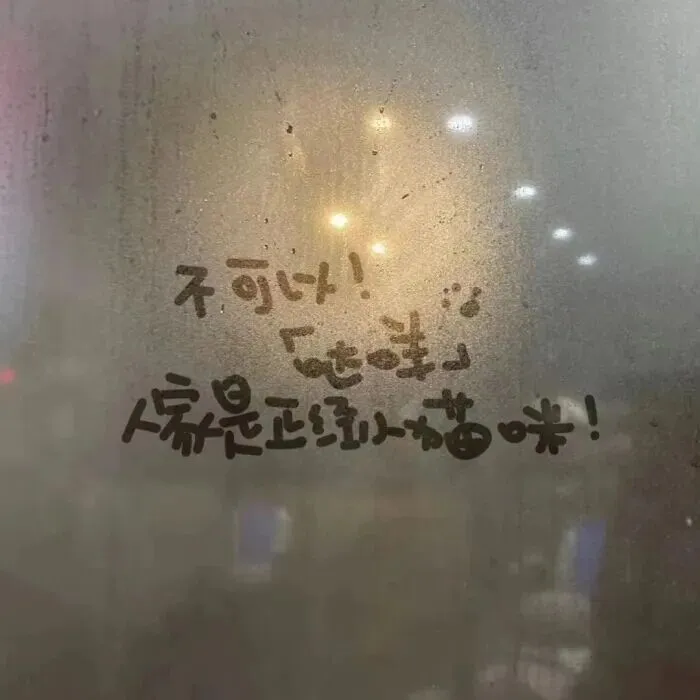 不可以!
「哒咩」
人家是正经小猫咪!